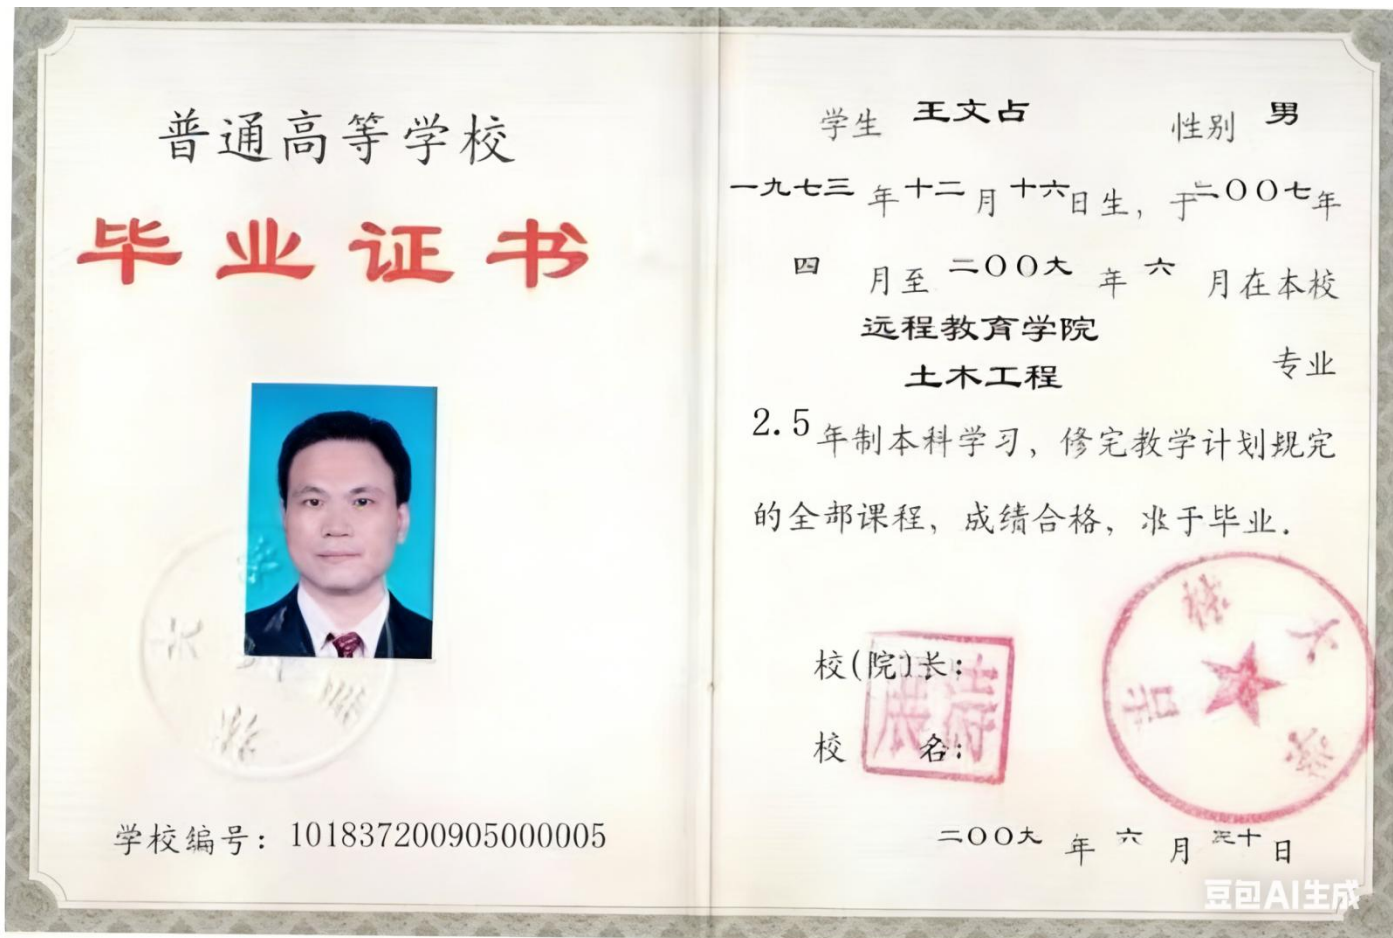 普通高等学校
毕业证书
学校编号：101837200905000005
学生 王文占 性别 男
一九七三年十二月十六日生，于二〇〇七年
四月至二〇〇九年六月在本校
远程教育学院
土木工程 专业
2.5年制本科学习，修完教学计划规定
的全部课程，成绩合格，准于毕业.
校(院)长：
校 名：
吉林大学
二〇〇九年六月 十日
豆包AI生成